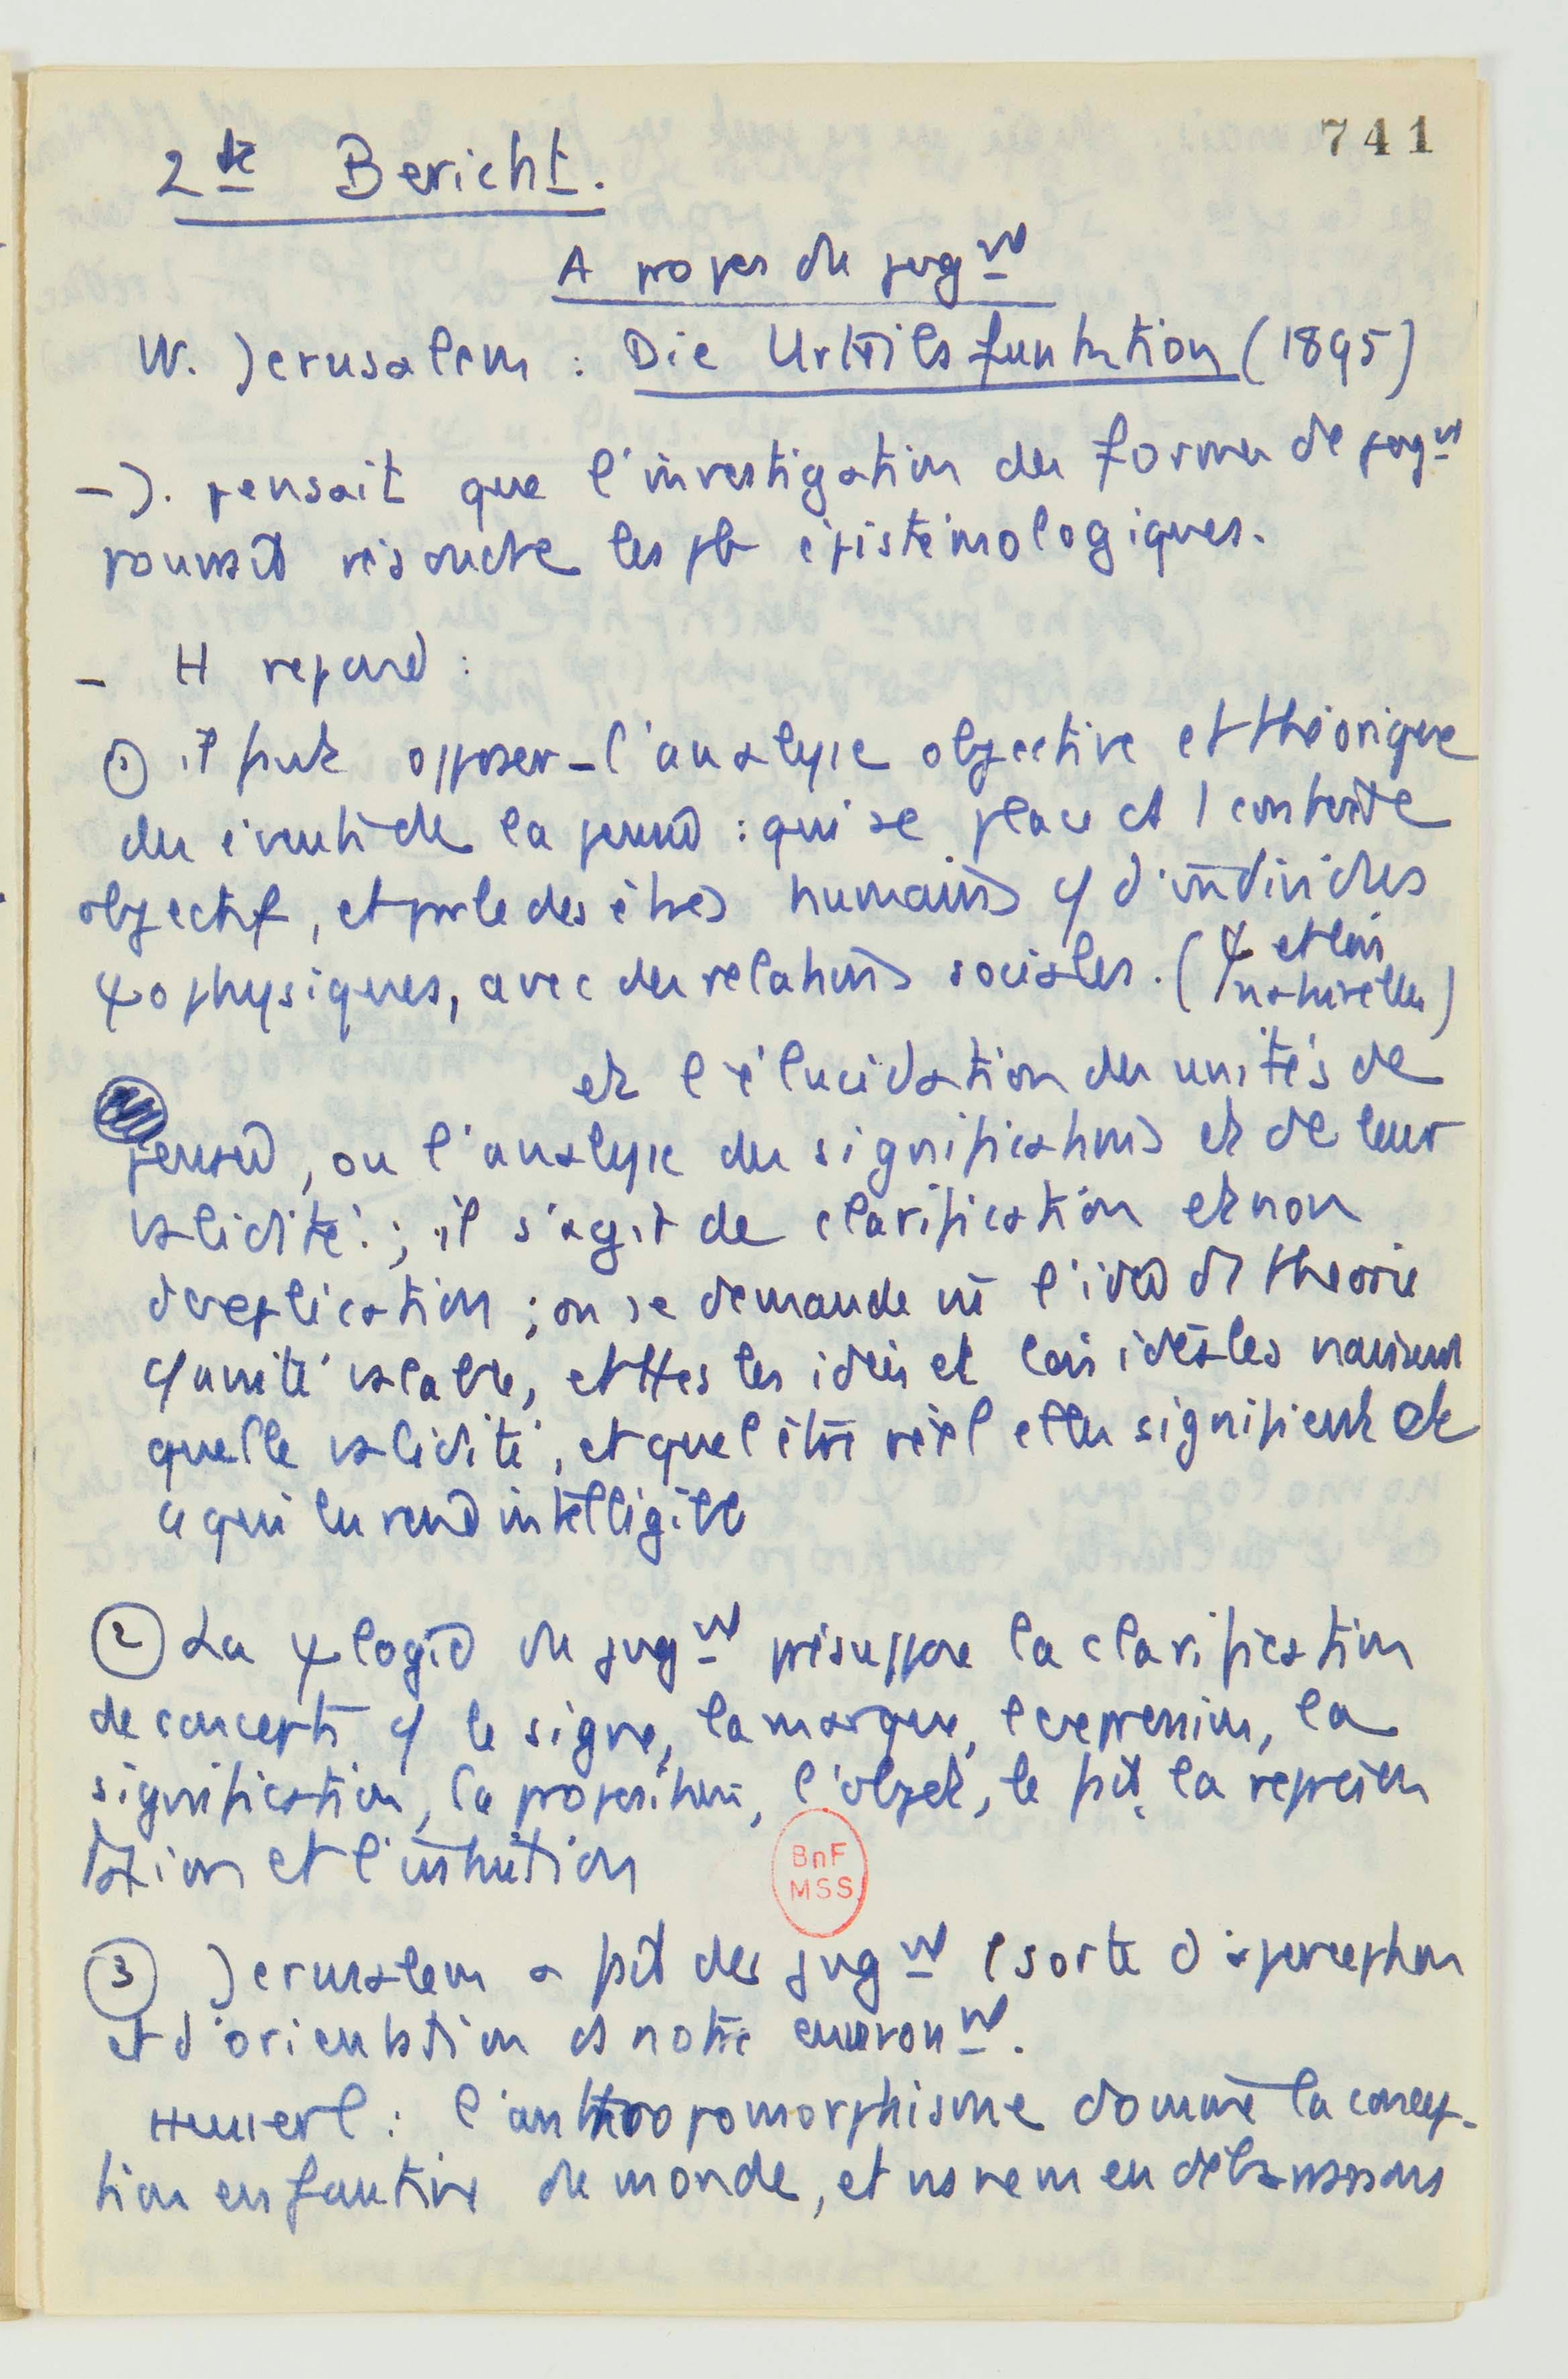 741
2te Bericht.
A propos du jugnt
W. Jerusalem : Die Urteilsfunktion (1895)
- J. pensait que l'investigation des formes de jugnt
pourrait résoudre les pb épistémologiques.
- H répond :
① il faut opposer - l'analyse objective et théorique
des événts de la pensée : qui se place ds 1 contexte
objectif, et parle des êtres humains c/ d'individus
ψophysiques, avec des relations sociales. (ψ et lois
naturelles)
et l'élucidation des unités de
pensée, ou l'analyse des significations et de leur
validité ; il s'agit de clarification et non
d'explication ; on se demande où l'idée de théorie
c/ unité valable, et ttes les idées et lois idéales
quelle validité, et quel être réel elles signifient et
ce qui les rend intelligible
② La ψlogie du jugnt présuppose la clarification
de concepts c/ le signe, la marque, l'expression, la
signification, la proposition, l'objet, le fait, la représen
tation et l'intuition
③ Jerusalem a fait des jugnt 1 sorte d'aperception
et d'orientation ds notre environnt.
Husserl : l'anthropomorphisme domine la concep-
tion enfantine du monde, et ns en débarrassons
BnF
MSS